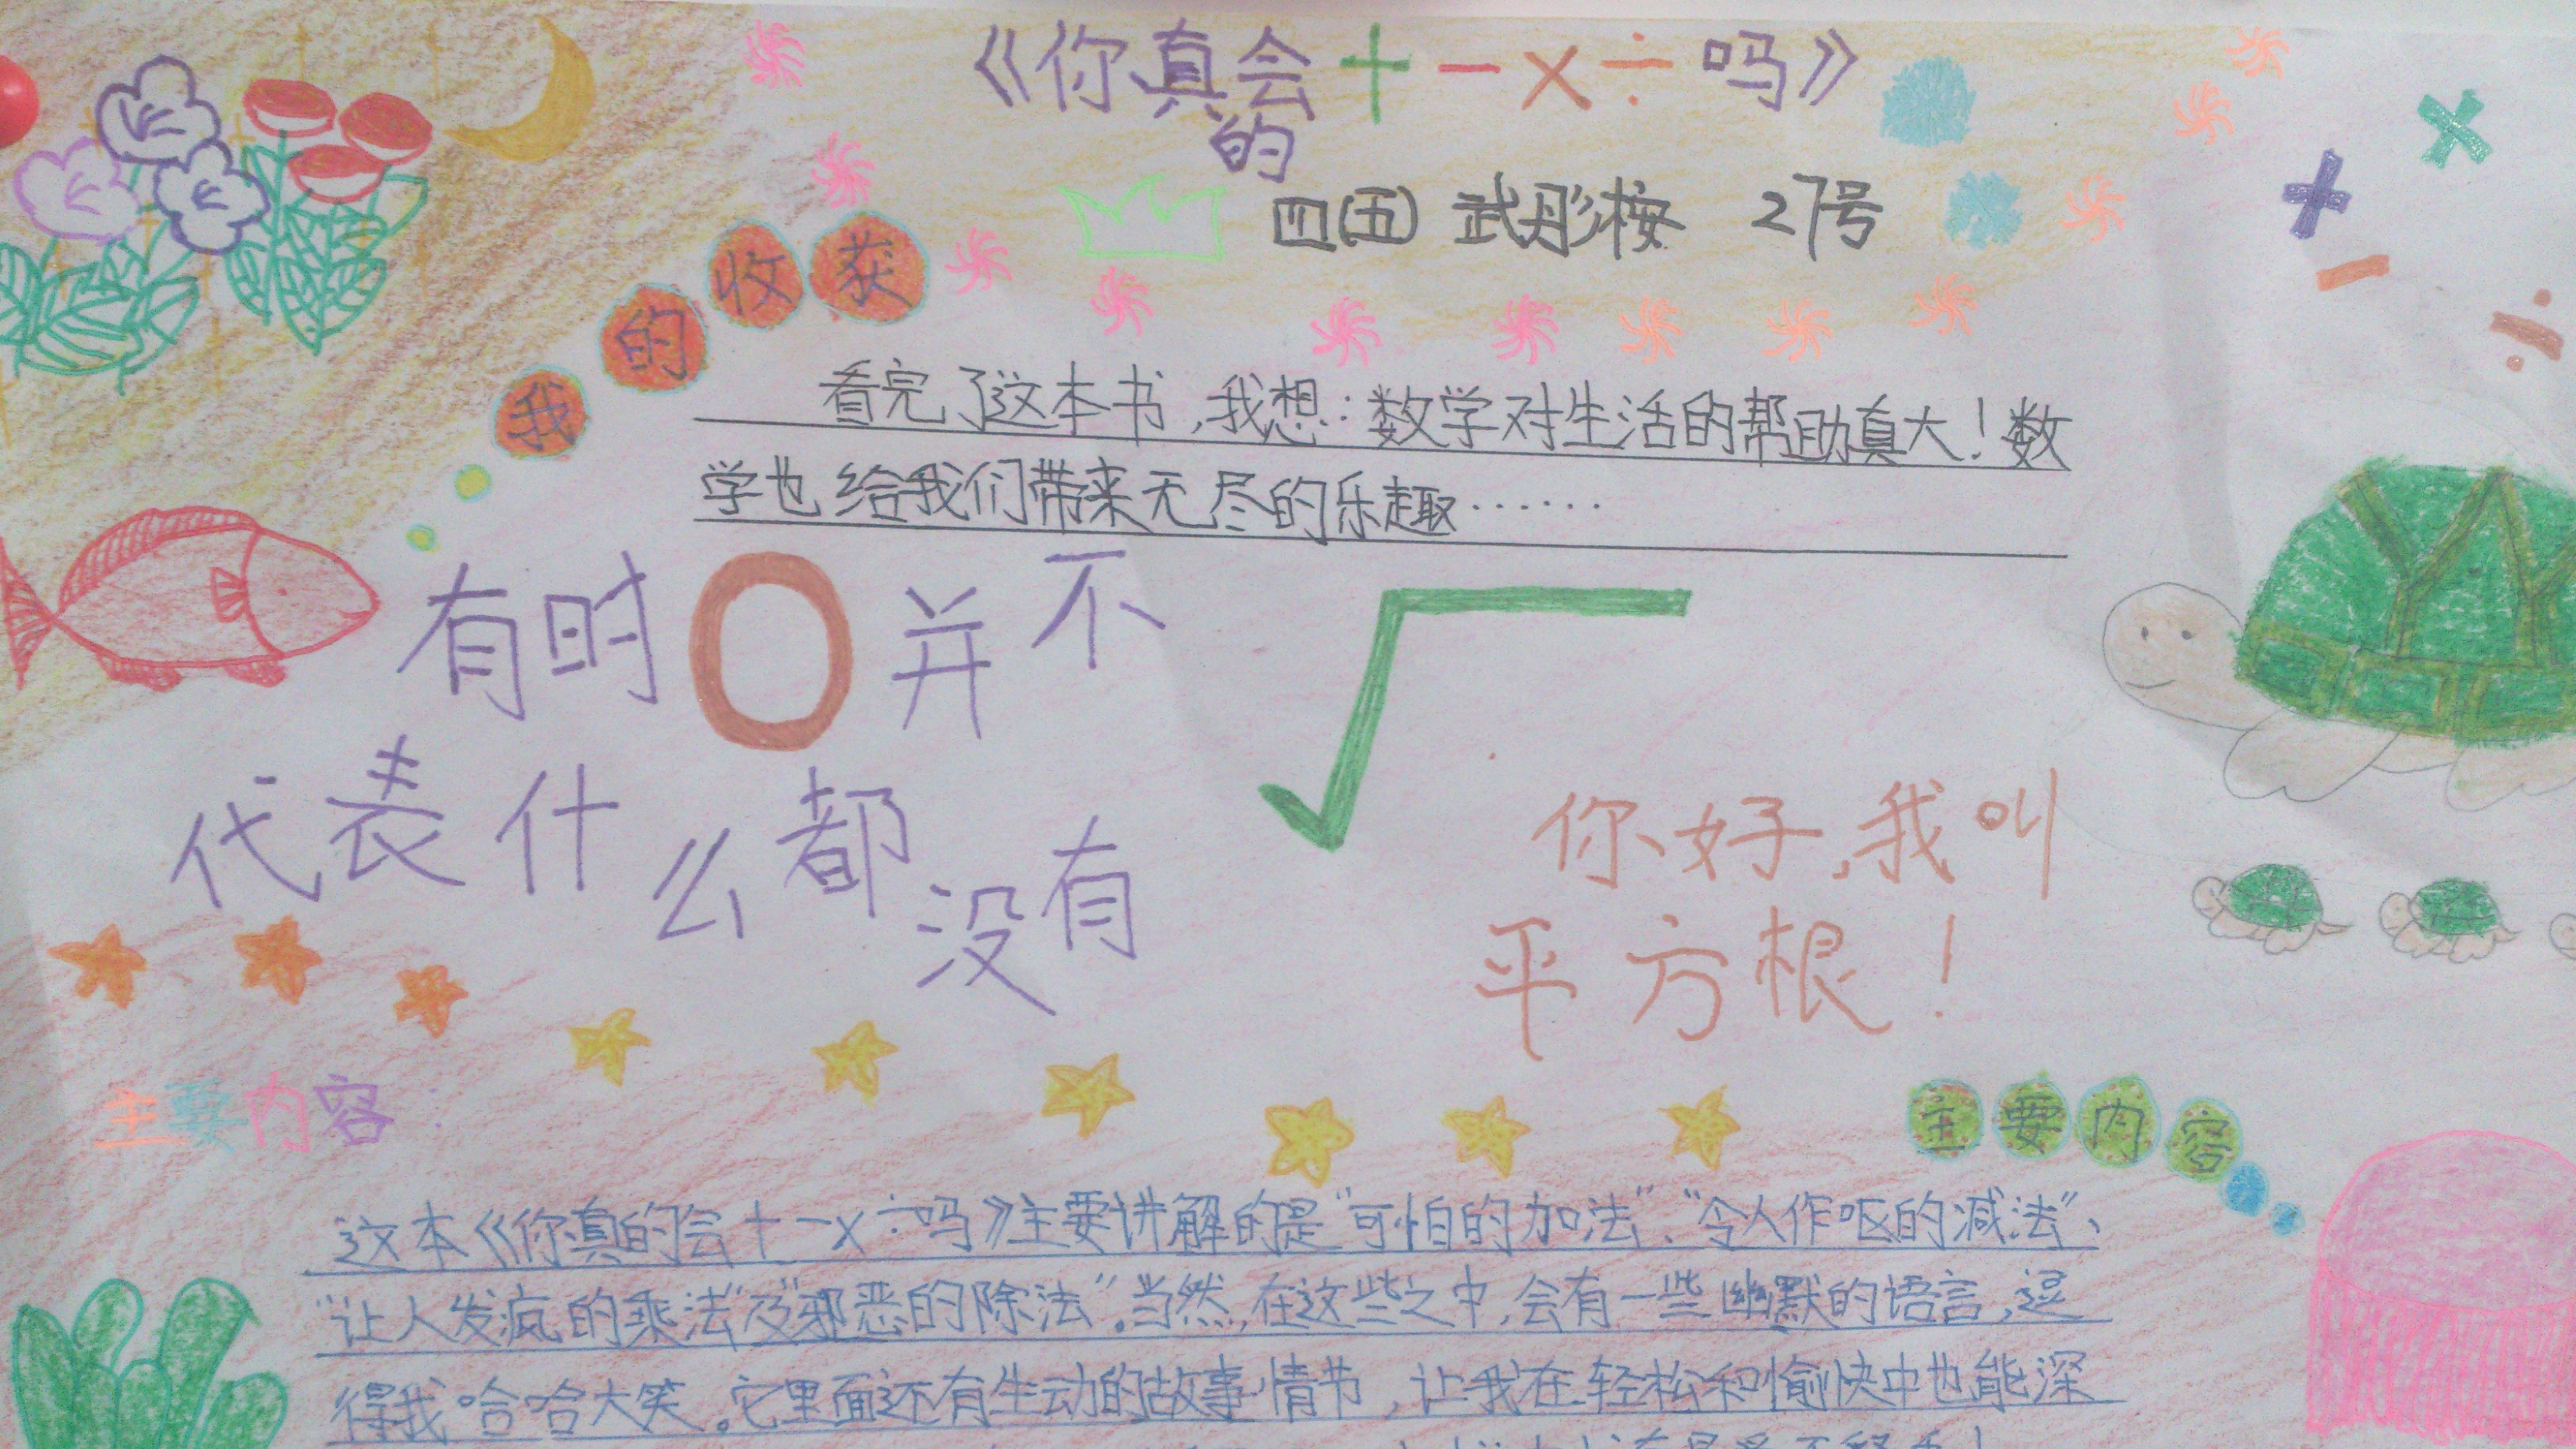 《你真会+-×÷吗》
的
四(五) 武彤桉 27号
我的收获
看完了这本书,我想:数学对生活的帮助真大!数
学也给我们带来无尽的乐趣……
有时0并不
代表什么都没有
√
你好,我叫
平方根!
主要内容:
主要内容
这本《你真的会+-×÷吗》主要讲解的是“可怕的加法”、“令人作呕的减法”、
“让人发疯的乘法”及“邪恶的除法”。当然,在这些之中,会有一些幽默的语言,逗
得我哈哈大笑。它里面还有生动的故事情节,让我在轻松和愉快中也能深